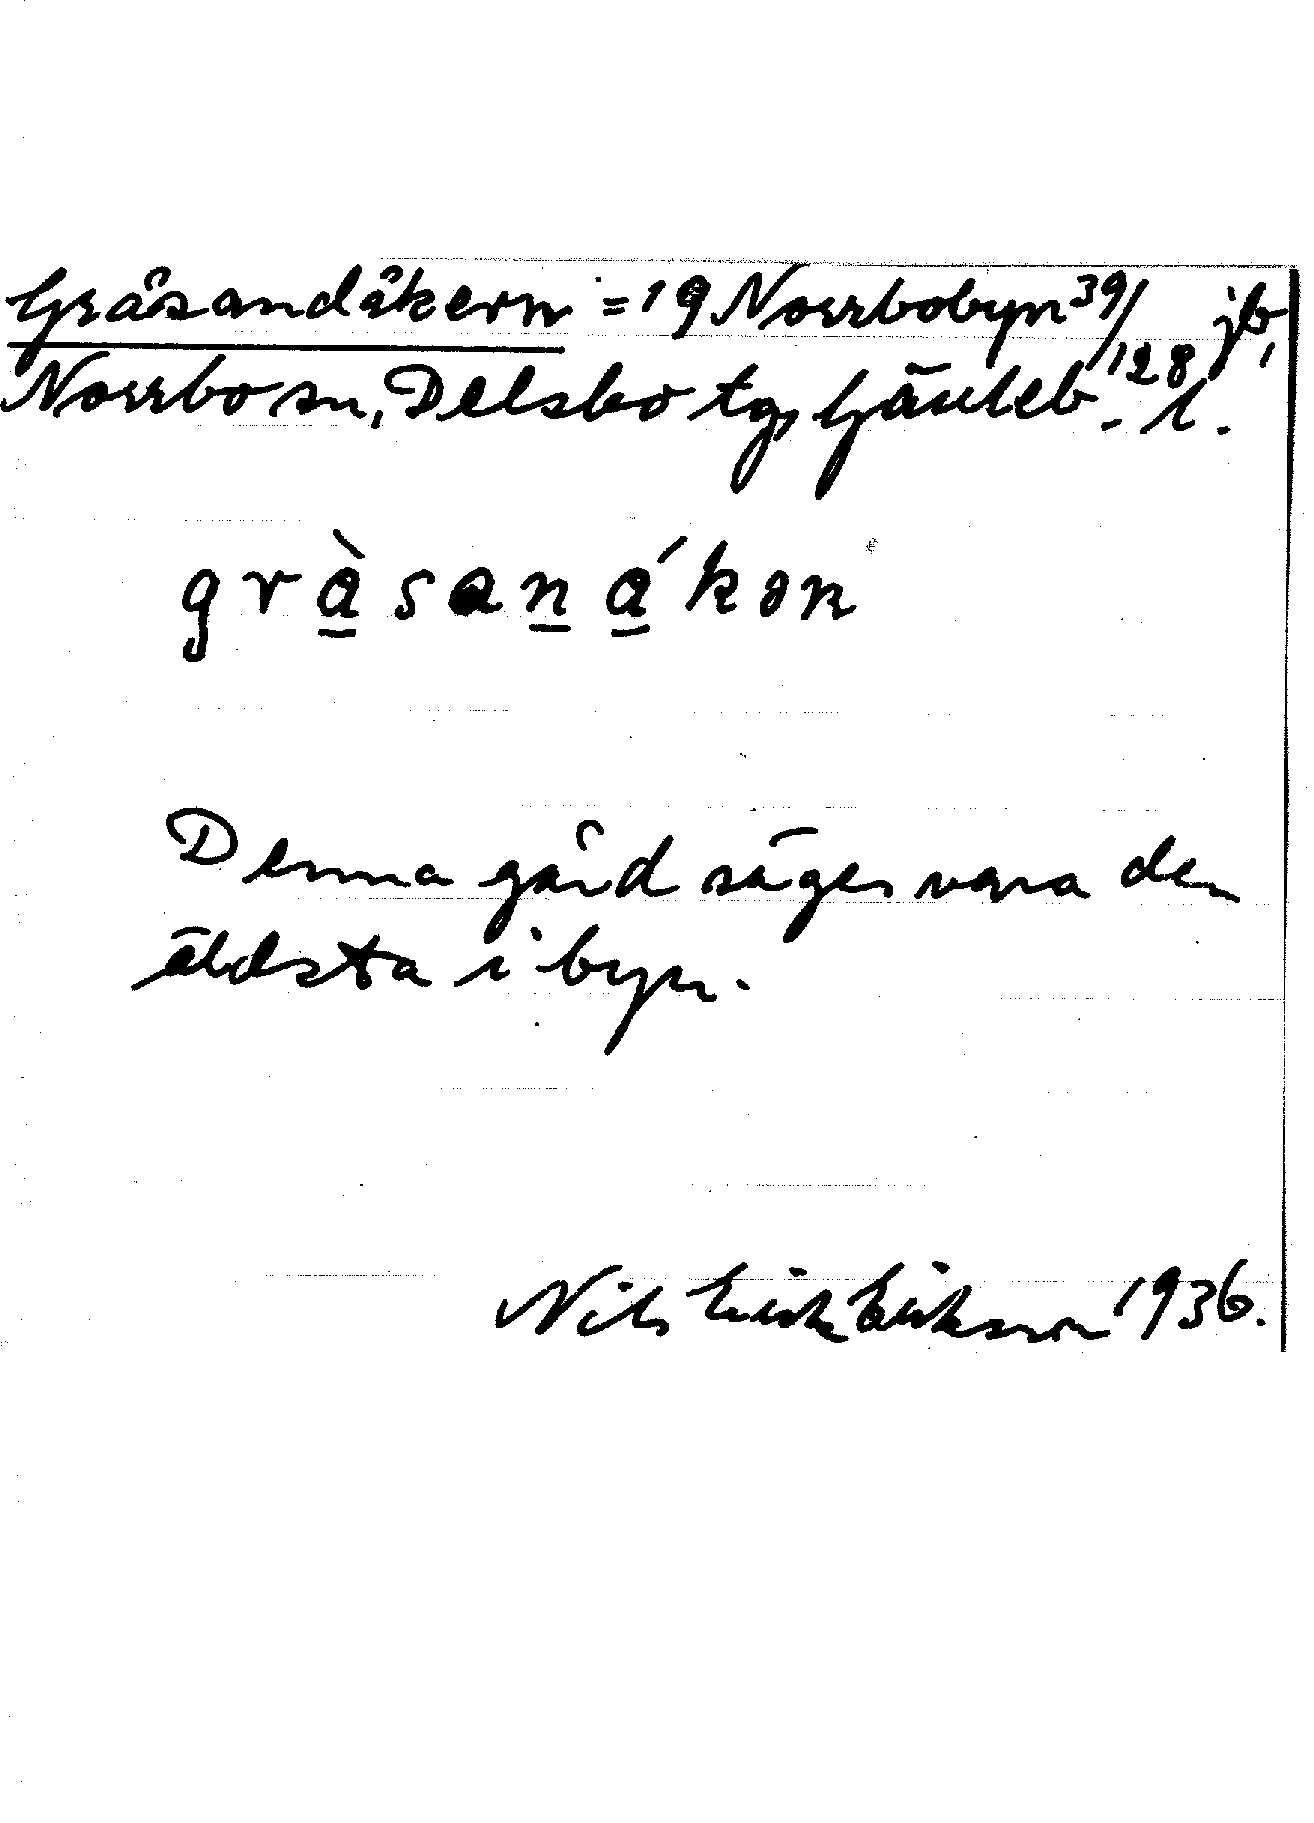 Gråsandåkern = 19 Norrbobyn 39/128 jb,
Norrbo sn, Delsbo tg, Gävleb. l.
gràsaṉákən
Denna gård säges vara den
äldsta i byn.
Nils Erik Eriksson 1936.